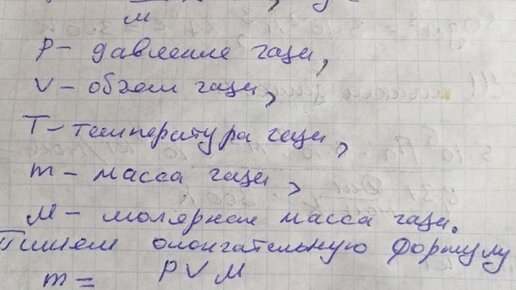 M
P – давление гази,
V – объем гази,
T – температура гази,
m – масса гази,
M – молярная масса гази.
Пишем формулу
m = PVM